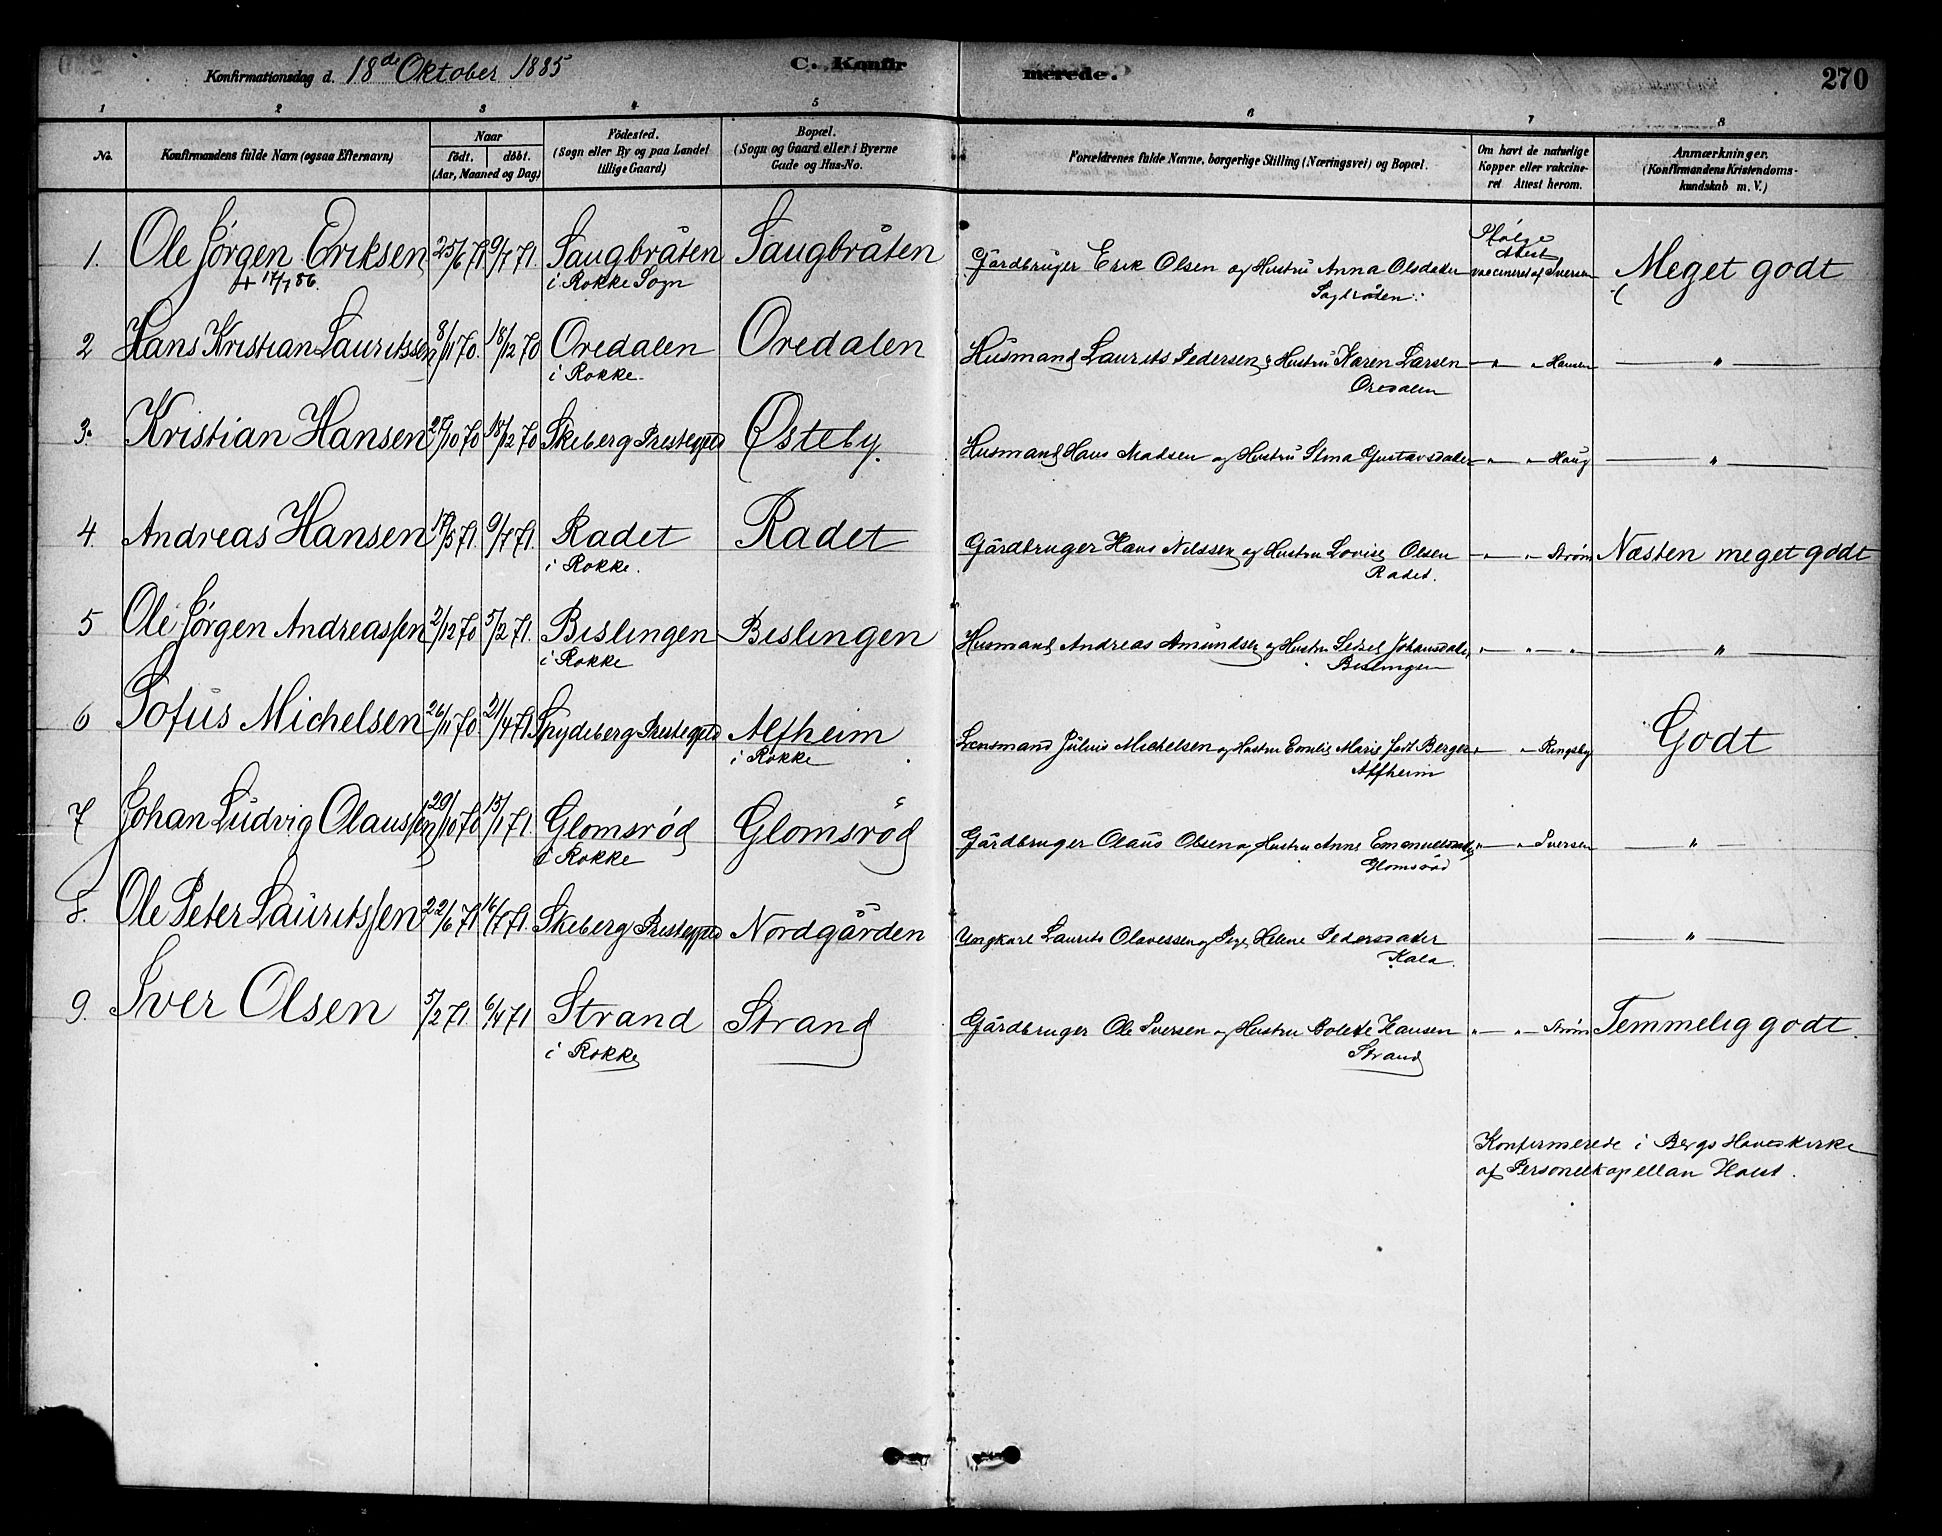 Konfirmationsdag d. 18de Oktober 1885 C. Konfirmerede. 270
1 2 3 4 5 6 7 8
No. Konfirmandens fulde Navn (ogsaa Efternavn) Naar født. døbt. (Aar, Maaned og Dag) Fødested. (Sogn eller By og paa Landet tillige Gaard) Bopæl. (Sogn og Gaard eller i Byerne Gade og Hus-No. Forældrenes fulde Navne, borgerlige Stilling (Næringsvei) og Bopæl. Om havt de naturlige Kopper eller vakcineret Attest herom. Anmærkninger. (Konfirmandens Kristendomskundskab m. V.)
1. Ole Jørgen Eriksen 25/6 71 9/7 71. Saugbråten Saugbråten Gårdbruger Erik Olsen og Hustru Anna Olsdatter Ifølge Attest vaccineret af Iversen Meget godt
+ 17/7 86. i Rokke Sogn
2 Hans Kristian Lauritssen 8/11 70. 18/12 70 Oredalen Oredalen Husmand Laurits Pedersen & Hustru Karen Larsen " " Hansen "
i Rokke. Oredalen
3. Kristian Hansen 27/10 70 18/12 70 Skeberg Prestegjeld Østeby. Husmand Hans Madsen og Hustru Stina Gustavsdatter " " Haug "
4. Andreas Hansen 17/5 71. 9/7 71. Radet Radet Gårdbruger Hans Nilssen og Hustru Lovise Olsen " " Strøm Næsten meget godt
i Rokke. Radet.
5 Ole Jørgen Andreassen 2/12 70 5/2 71. Bislingen Bislingen Husmand Andreas Amundsen og Hustru Johansdatter " " " "
i Rokke Bislingen
6 Sofus Michelsen 26/11 70. 21/4 71. Spydeberg Prestegjeld Alfheim Lensmand Julius Michelsen og Hustru Emilie Marie født Berger " " Ringsby Godt
i Rokke Alfheim
7 Johan Ludvig Olaussen 29/10 70 15/1 71. Glomsrød Glomsrød Gårdbruger Olaus Olsen og Hustru Anne Emanuelsdatter " " Iversen "
i Rokke Glomsrød
8. Ole Peter Lauritssen 22/6 71 16/7 71. Skeberg Prestegjeld Nordgården Ungkarl Laurits Olavessen og Pige Helene Pedersdatter "
9. Iver Olsen 5/2 71. 6/4 71 Strand Strand Gårdbruger Ole Iversen og Hustru Bolette Hansen " " Strøm Temmelig godt.
i Rokke Strand
Konfirmerede i Bergs Hoveskirke
af Personelkapellan Holst.